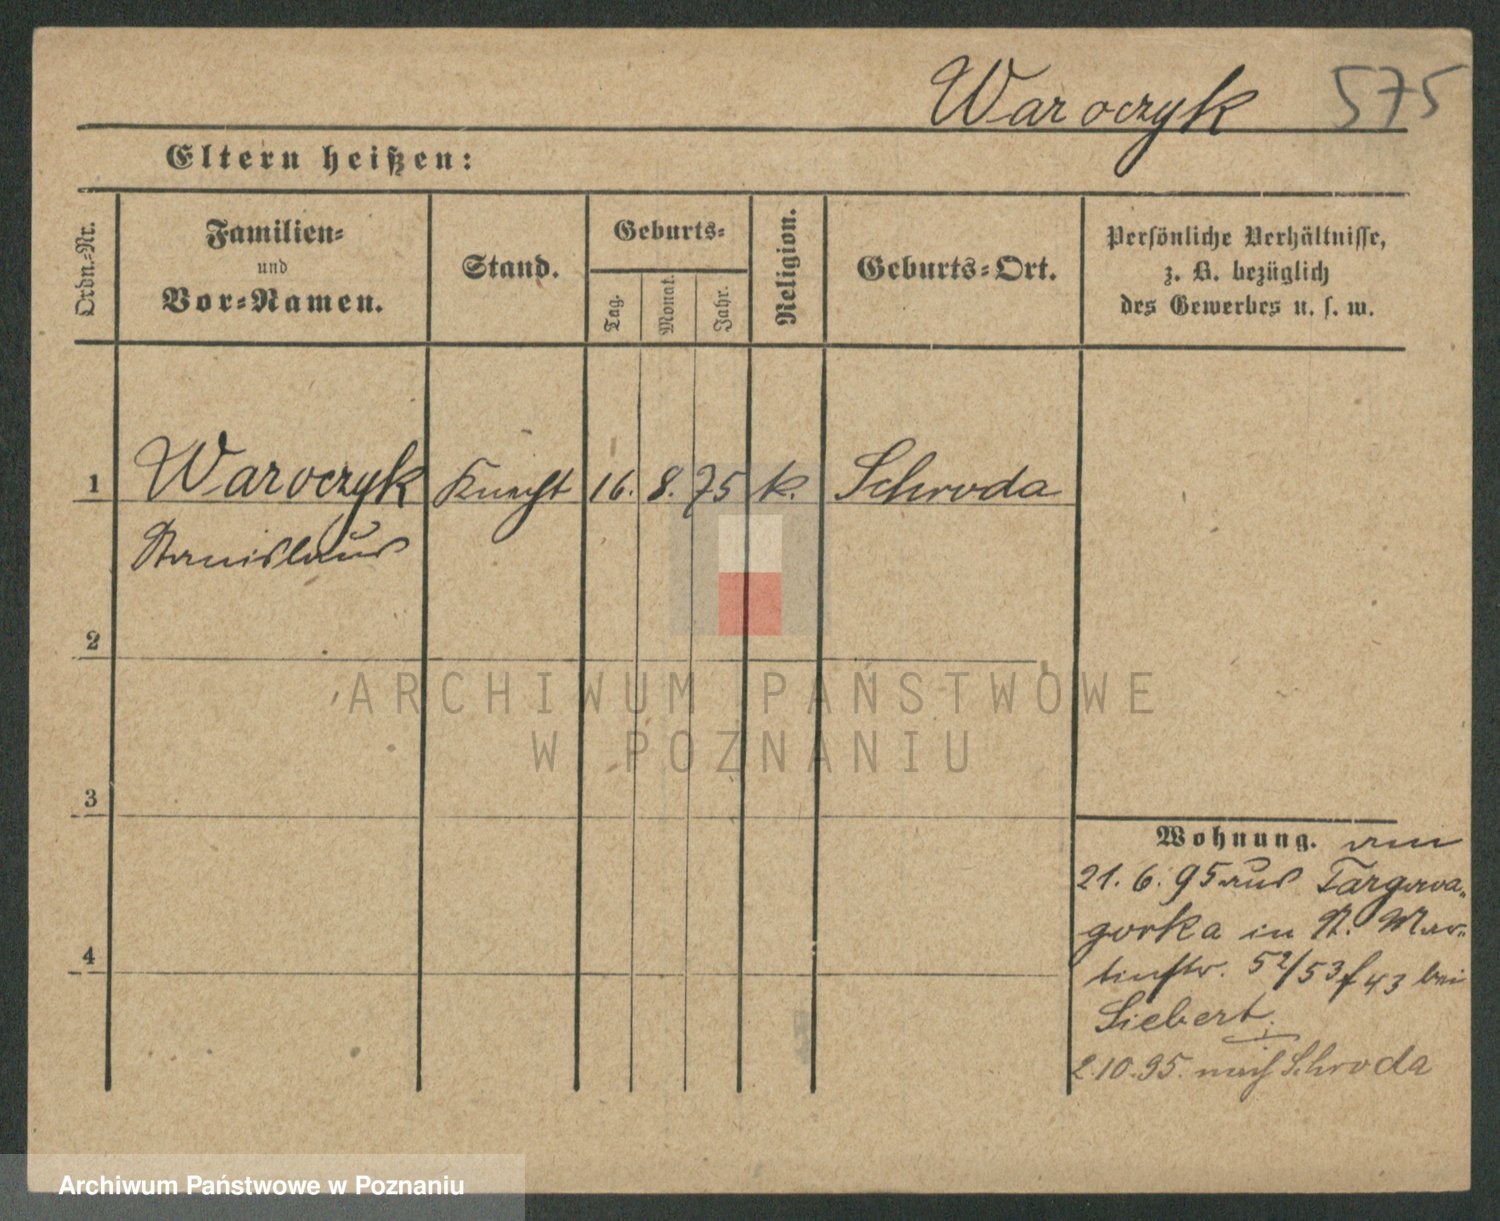 Waroczyk 575
Eltern heißen:
Ordn.-Nr.
Familien-
und
Vor-Namen.
Stand.
Geburts-
Tag.
Monat.
Jahr.
Religion.
Geburts-Ort.
Persönliche Verhältnisse,
z. B. bezüglich
des Gewerbes u. s. w.
1 Waroczyk Knecht 16. 8. 75 k. Schroda
Stanislaus
2
ARCHIWUM PAŃSTWOWE
W POZNANIU
3
Wohnung. am
21. 6. 95 aus Targowa-
gorka in St. Mar-
tinstr. 52/53 f 43 bei
Siebert.
2.10.95. nach Schroda
4
Archiwum Państwowe w Poznaniu